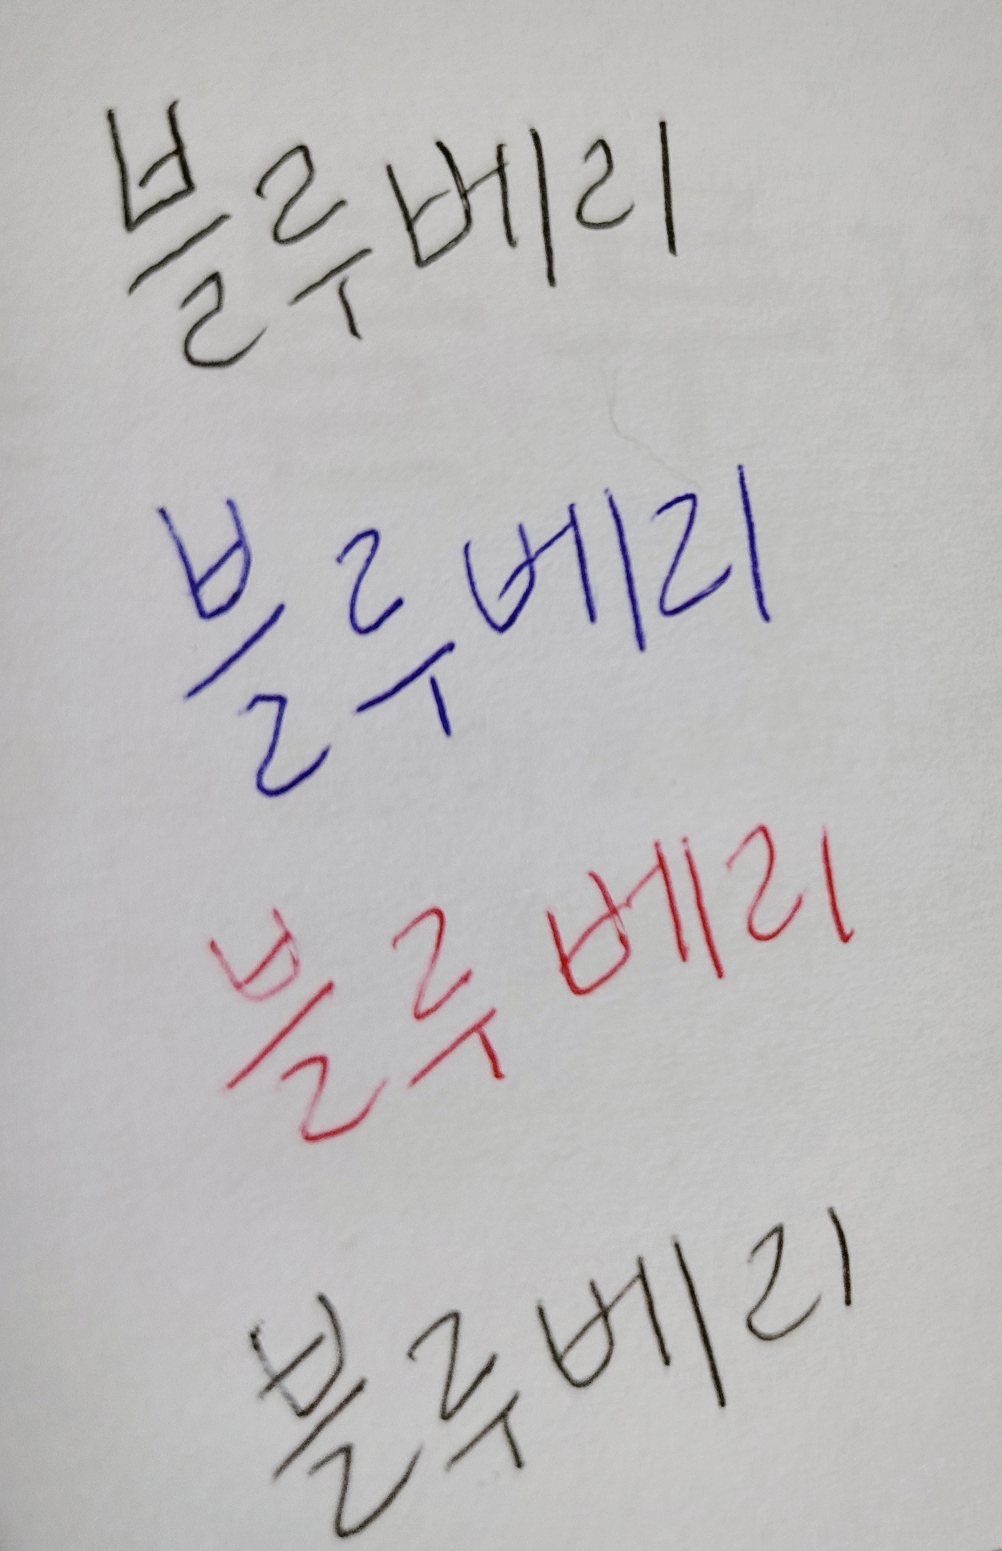 블루베리
블루베리
블루베리
블루베리